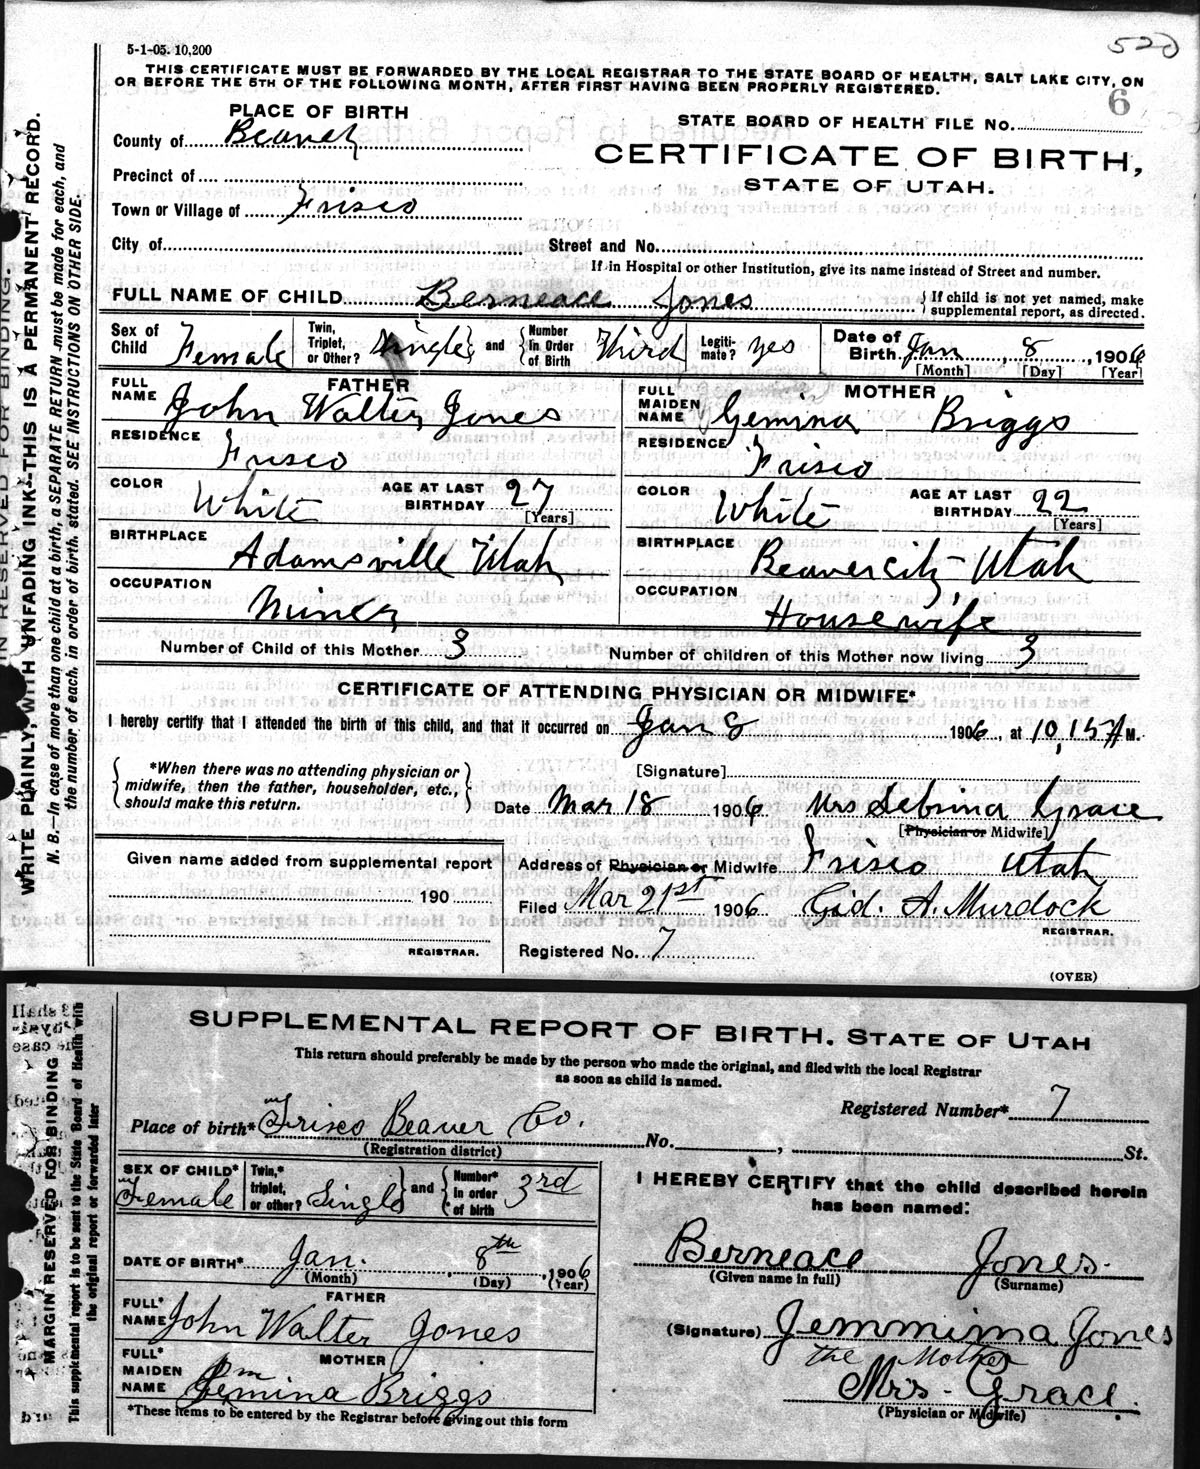 5-1-05. 10,200
520
THIS CERTIFICATE MUST BE FORWARDED BY THE LOCAL REGISTRAR TO THE STATE BOARD OF HEALTH, SALT LAKE CITY, ON
OR BEFORE THE 5TH OF THE FOLLOWING MONTH, AFTER FIRST HAVING BEEN PROPERLY REGISTERED.
6
PLACE OF BIRTH
STATE BOARD OF HEALTH FILE No.
County of Beaver
CERTIFICATE OF BIRTH,
STATE OF UTAH.
Precinct of
Town or Village of Frisco
City of Street and No.
If in Hospital or other Institution, give its name instead of Street and number.
FULL NAME OF CHILD Berneace Jones { If child is not yet named, make supplemental report, as directed.
Sex of Child Female Twin, Triplet, or Other? Single and Number in Order of Birth Third Legiti-mate? yes Date of Birth Jan 8, 1906
[Month] [Day] [Year]
FATHER MOTHER
FULL NAME John Walter Jones FULL MAIDEN NAME Gemina Briggs
RESIDENCE Frisco RESIDENCE Frisco
COLOR White AGE AT LAST BIRTHDAY 27 [Years] COLOR White AGE AT LAST BIRTHDAY 22 [Years]
BIRTHPLACE Adamsville Utah BIRTHPLACE Beaver city Utah
OCCUPATION Miner OCCUPATION Housewife
Number of Child of this Mother 3 Number of children of this Mother now living 3
CERTIFICATE OF ATTENDING PHYSICIAN OR MIDWIFE*
I hereby certify that I attended the birth of this child, and that it occurred on Jan 8 1906, at 10,15 A M.
*When there was no attending physician or midwife, then the father, householder, etc., should make this return.
[Signature]
Date Mar 18 1906 Mrs Sebrina Grace
[Physician or Midwife]
Given name added from supplemental report
190
REGISTRAR.
Address of Physician or Midwife Frisco Utah
Filed Mar 21st 1906 Gid. A. Murdock
REGISTRAR.
Registered No. 7
(OVER)
IN RESERVED FOR BINDING.
WRITE PLAINLY, WITH UNFADING INK-THIS IS A PERMANENT RECORD.
N. B.—In case of more than one child at a birth, a SEPARATE RETURN must be made for each, and
the number of each, in order of birth, stated. SEE INSTRUCTIONS ON OTHER SIDE.
SUPPLEMENTAL REPORT OF BIRTH. STATE OF UTAH
This return should preferably be made by the person who made the original, and filed with the local Registrar
as soon as child is named.
Registered Number* 7
Place of birth* Frisco Beaver Co. No. , St.
(Registration district)
SEX OF CHILD* Female Twin,* triplet, or other? Single and Number* in order of birth 3rd
I HEREBY CERTIFY that the child described herein
has been named:
Berneace Jones
(Given name in full) (Surname)
DATE OF BIRTH* Jan. 8th, 1906
(Month) (Day) (Year)
FATHER
FULL* NAME John Walter Jones
(Signature) Jemmima Jones
the Mother
MOTHER
FULL* MAIDEN NAME Jemina Briggs
Mrs. Grace
(Physician or Midwife)
*These items to be entered by the Registrar before giving out this form
MARGIN RESERVED FOR BINDING
This supplemental report is to be sent to the State Board of Health with
the original report or forwarded later